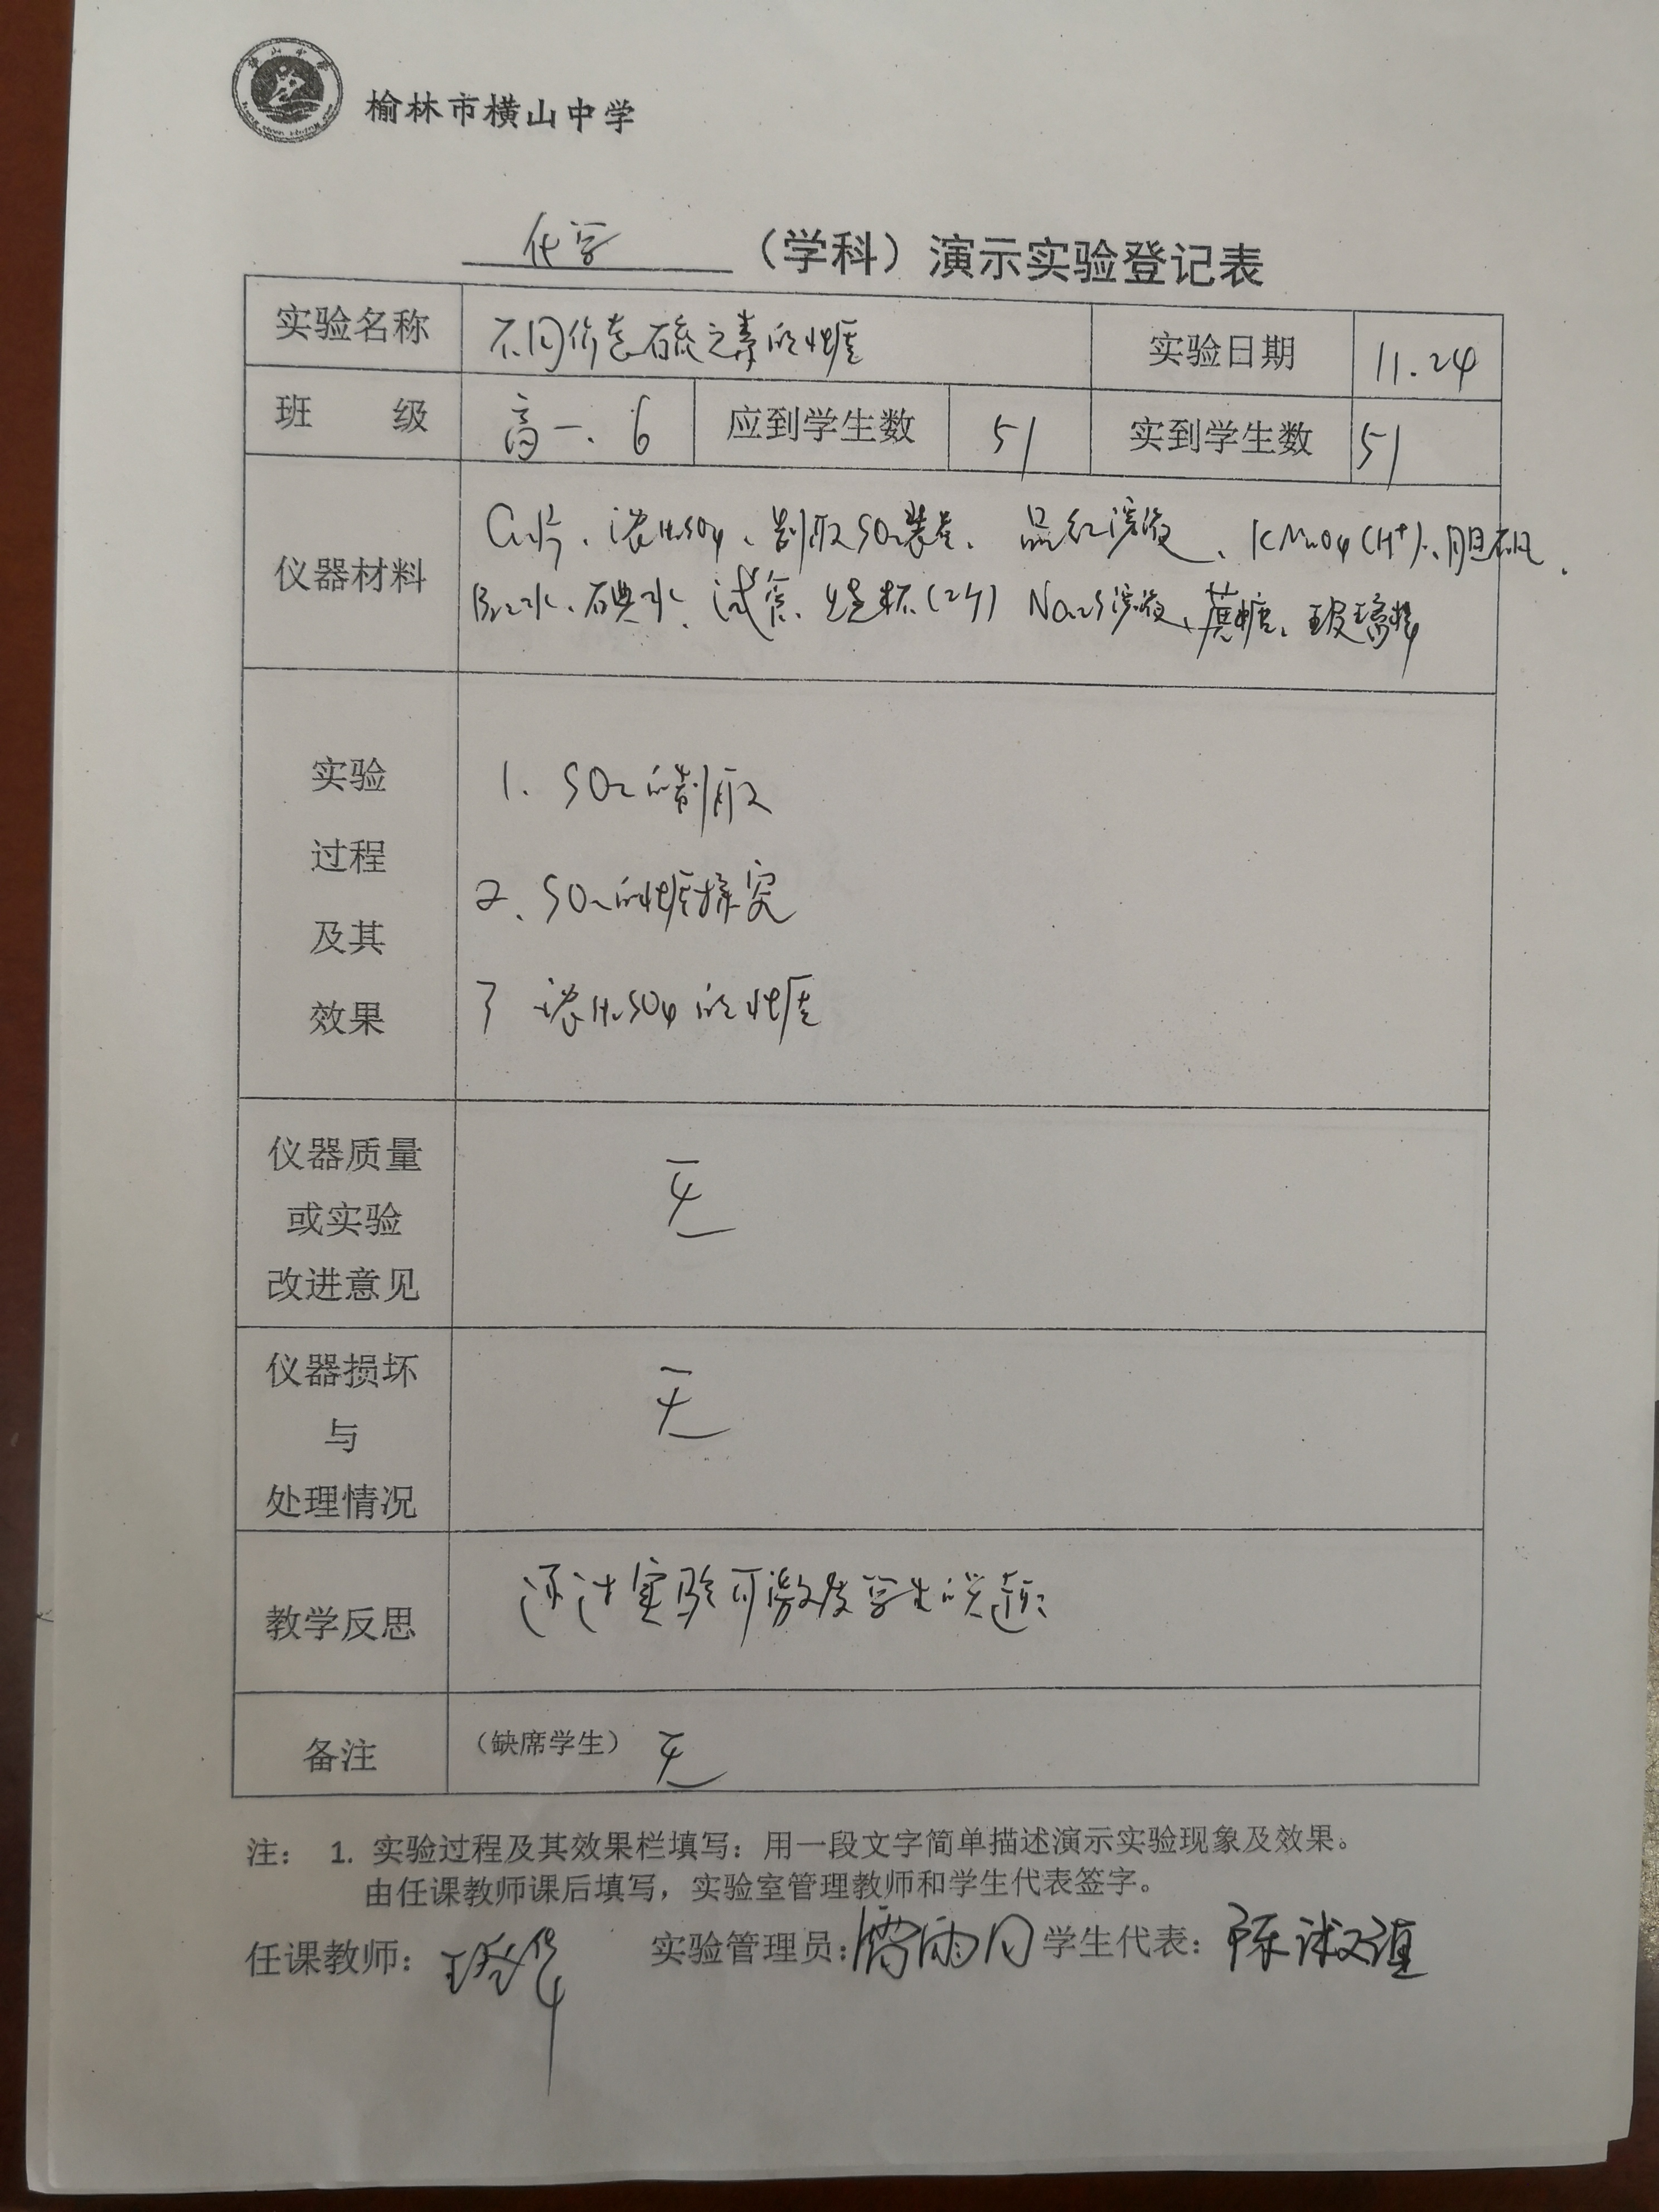 榆林市横山中学
化学（学科）演示实验登记表
实验名称 不同价态硫元素的性质 实验日期 11.24
班 级 高一.6 应到学生数 51 实到学生数 51
仪器材料 Cu片、浓H2SO4、制取SO2装置、品红溶液、KMnO4(H+)、胆矾、
Br2水、碘水、试管、烧杯(2个) Na2S溶液、蔗糖、玻璃棒
实验
过程
及其
效果
1. SO2的制取
2、SO2的性质探究
3 浓H2SO4的性质
仪器质量
或实验
改进意见
无
仪器损坏
与
处理情况
无
教学反思 通过实验可激发学生的兴趣
备注 （缺席学生） 无
注： 1. 实验过程及其效果栏填写：用一段文字简单描述演示实验现象及效果。
由任课教师课后填写，实验室管理教师和学生代表签字。
任课教师： 实验管理员： 学生代表：